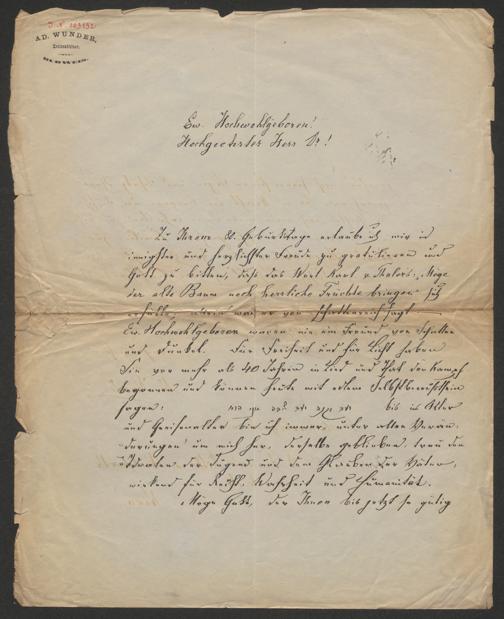 J. N. 103132
AD. WUNDER,
BUDWEIS.
Ew. Hochwohlgeboren!
Hochgeehrter Herr Dr!
Zu Ihrem 80. Geburtstage erlaube ich mir in
innigster und herzlichster Freude zu gratulieren und
Gott zu bitten, daß das Wort Karl v. Thalers: „Möge
der alte Baum noch herrliche Früchte bringen" sich
erfülle, wenn er von sagt
Ew. Hochwohlgeboren waren nie ein Freund von Schatten
und Dunkel. Für Freiheit und für Licht haben
Sie vor mehr als 40 Jahren in Lied und That den Kampf
begonnen und können heute mit edlem Selbstbewußtsein
sagen: bis ins Alter
und Greisenalter bin ich immer, unter allen Verän-
derungen um mich her, derselbe geblieben, treu den
Idealen der Jugend und dem Glauben der Väter,
wirkend für Recht, Wahrheit und Humanität.
Möge Gott, der Ihnen bis jetzt so gütig